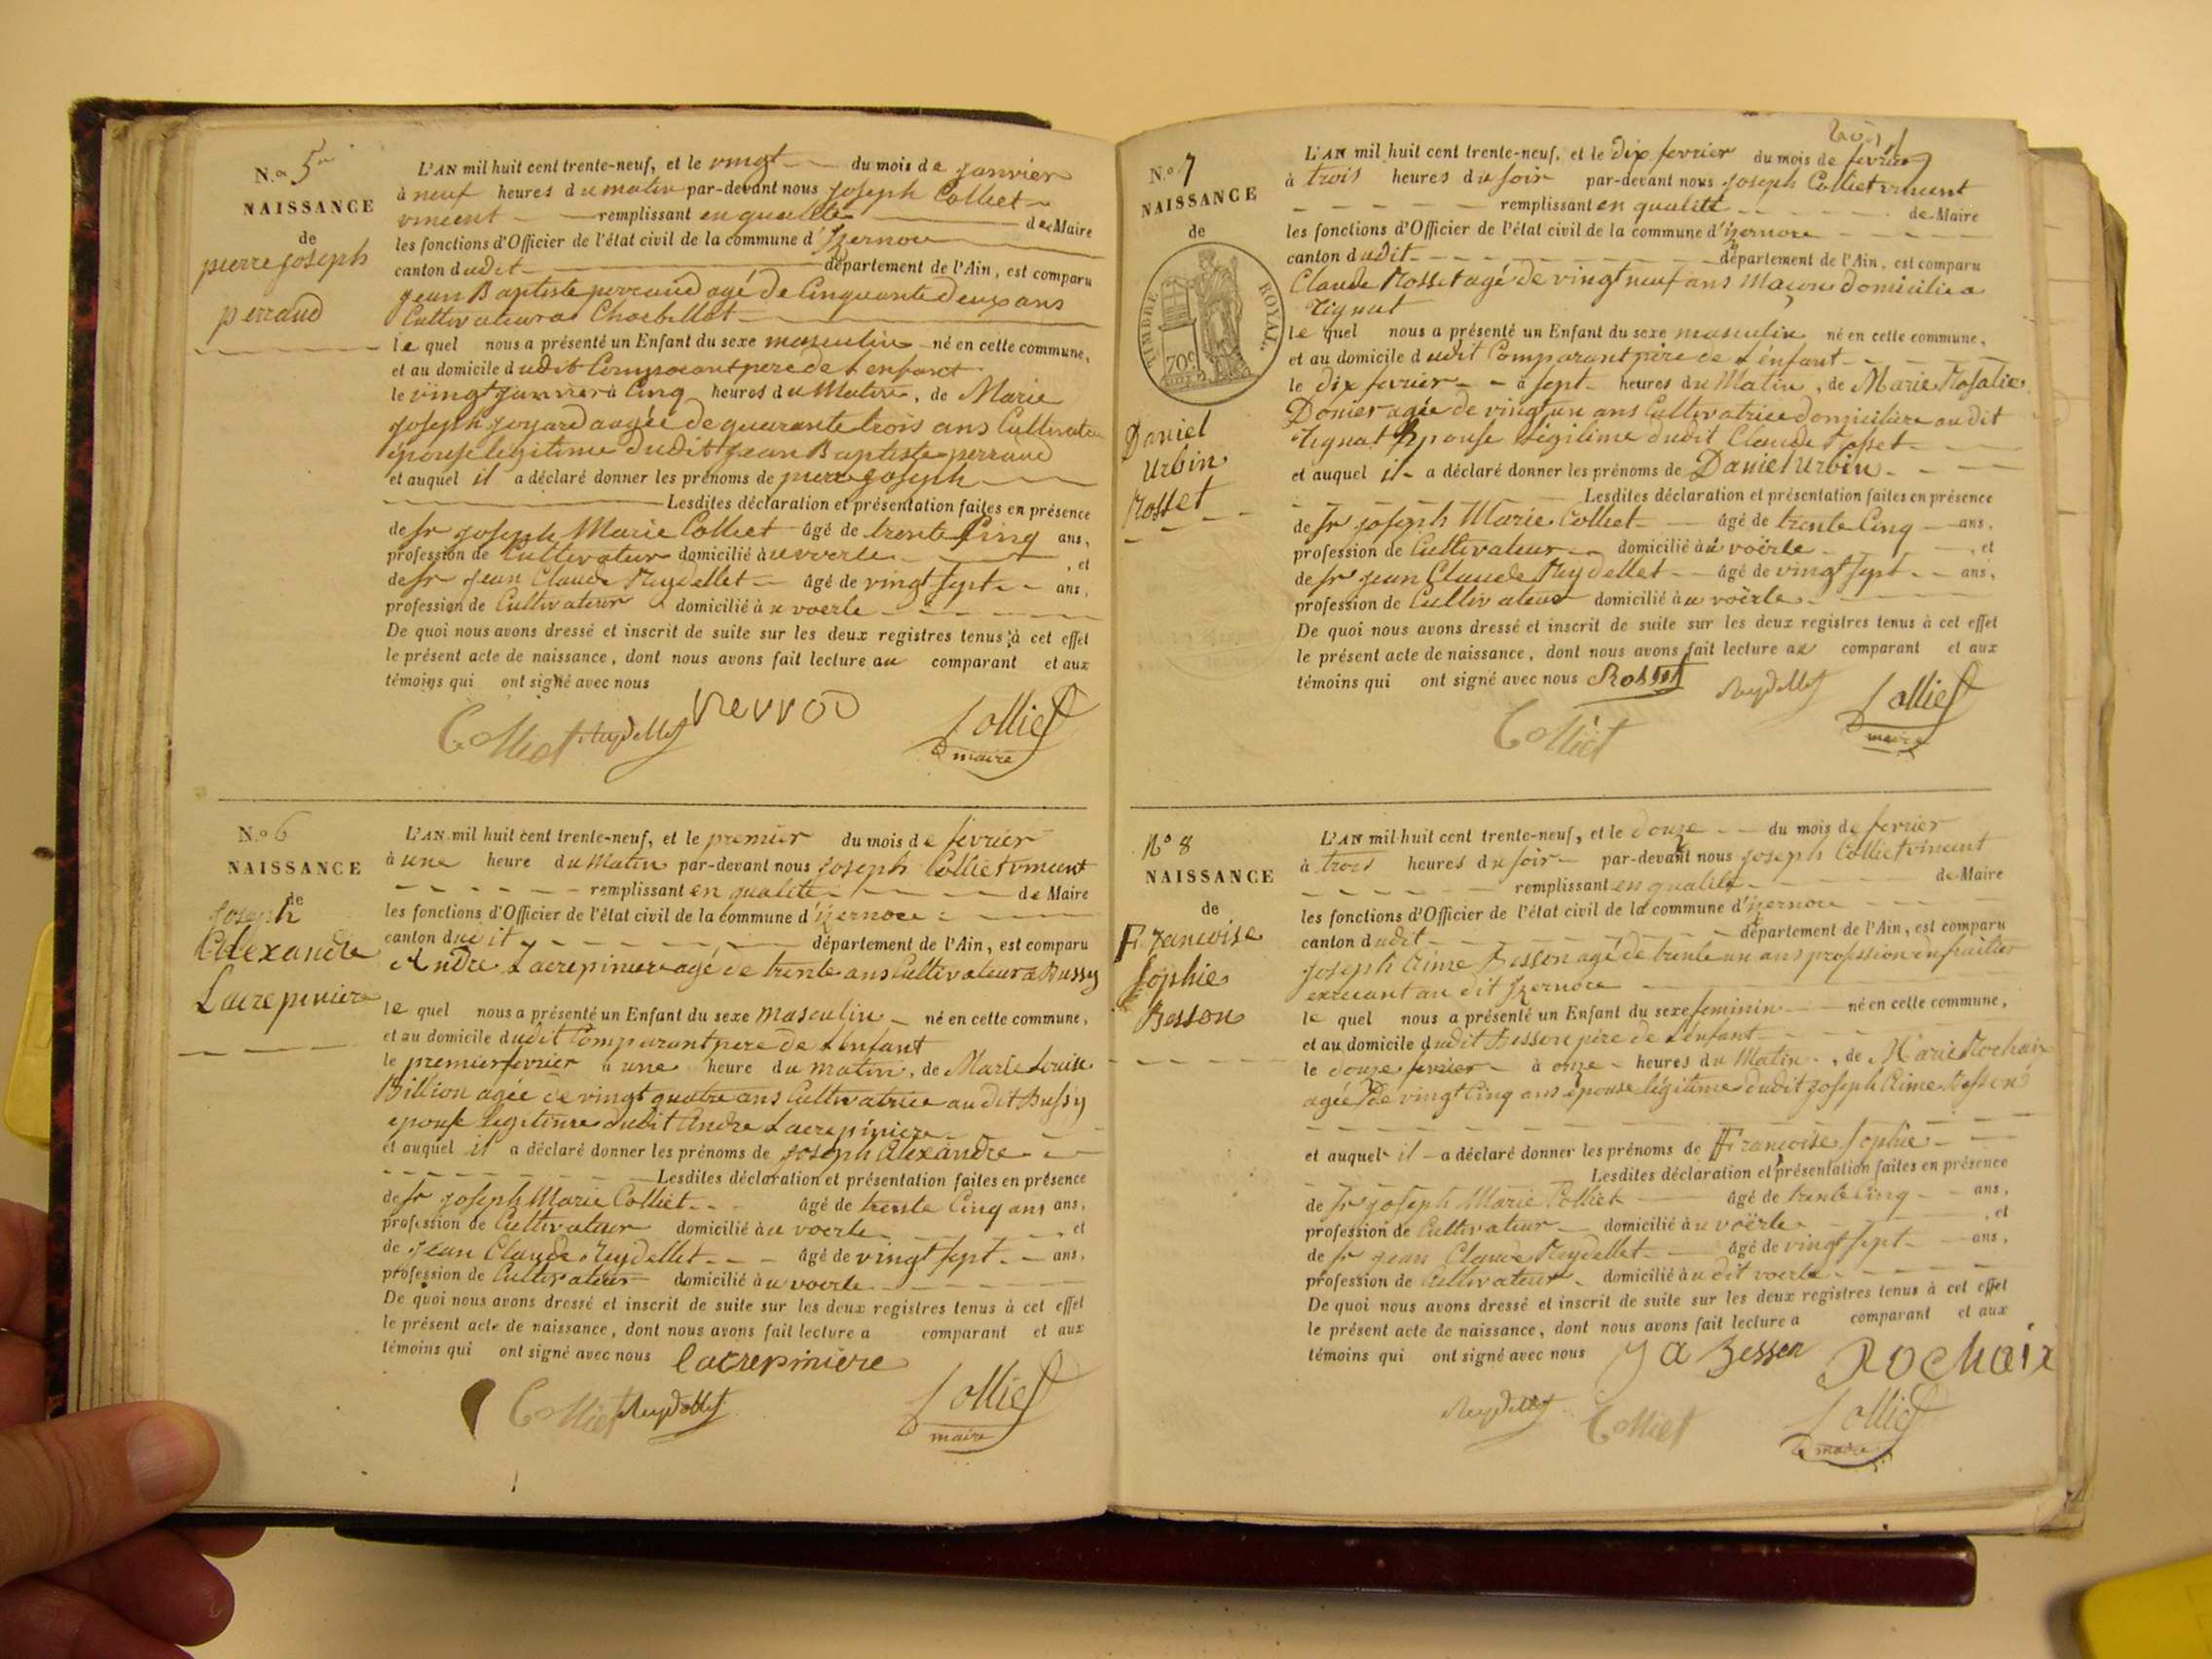 N.o 5
NAISSANCE
de
pierre joseph
perraud
L'AN mil huit cent trente-neuf, et le vingt du mois de janvier
à neuf heures du matin par-devant nous joseph Colliet
vincent remplissant en qualité de Maire
les fonctions d'Officier de l'état civil de la commune d'Izernore
canton dudit département de l'Ain, est comparu
jean Baptiste perraud agé de Cinquante deux ans
Cultivateur a Charbillat
le quel nous a présenté un Enfant du sexe masculin né en cette commune,
et au domicile dudit Comparant pere de l enfant
le vingt janvier à Cinq heures du Matin, de Marie
joseph joyard agée de quarante trois ans
épouse légitime dudit jean Baptiste perraud
et auquel il a déclaré donner les prénoms de pierre joseph
Lesdites déclaration et présentation faites en présence
de sr joseph Marie Colliet âgé de trente Cinq ans,
profession de Cultivateur domicilié à u voerle , et
de sr jean Claude Reydellet âgé de vingt sept ans,
profession de Cultivateur domicilié à u voerle
De quoi nous avons dressé et inscrit de suite sur les deux registres tenus à cet effet
le présent acte de naissance, dont nous avons fait lecture au comparant et aux
témoins qui ont signé avec nous
Colliet Reydellet Colliet
maire
N.o 6
NAISSANCE
de
joseph
Alexandre
Lacrepiniere
L'AN mil huit cent trente-neuf, et le premier du mois de fevrier
à une heure du Matin par-devant nous joseph Colliet vincent
remplissant en qualité de Maire
les fonctions d'Officier de l'état civil de la commune d'izernore
canton dudit département de l'Ain, est comparu
Andre Lacrepiniere agé de trente ans Cultivateur a Bussy
le quel nous a présenté un Enfant du sexe masculin né en cette commune,
et au domicile dudit Comparant pere de l Enfant
le premier fevrier à une heure du matin, de Marie Louise
Billion agée de vingt quatre ans Cultivatrice au dit Bussy
epouse legitime dudit Andre Lacrepiniere
et auquel il a déclaré donner les prénoms de joseph Alexandre
Lesdites déclaration et présentation faites en présence
de sr joseph Marie Colliet âgé de trente Cinq ans ans,
profession de Cultivateur domicilié à u voerle et
de jean Claude Reydellet âgé de vingt sept ans,
profession de Cultivateur domicilié à u voerle
De quoi nous avons dressé et inscrit de suite sur les deux registres tenus à cet effet
le présent acte de naissance, dont nous avons fait lecture a comparant et aux
témoins qui ont signé avec nous lacrepiniere
Colliet Reydellet Colliet
maire
N.o 7
NAISSANCE
de
TIMBRE ROYAL.
70c
Daniel
Urbin
Rosset
L'AN mil huit cent trente-neuf, et le dix fevrier du mois de fevrier
à trois heures du soir par-devant nous joseph Colliet vincent
remplissant en qualité de Maire
les fonctions d'Officier de l'état civil de la commune d'izernore
canton dudit département de l'Ain, est comparu
Claude Rosset agé de vingt neuf ans Maçon domicilié a
Tignat
le quel nous a présenté un Enfant du sexe masculin né en cette commune,
et au domicile dudit Comparant père de l énfant
le dix fevrier à sept heures du Matin, de Marie Rosalie
Donier agée de vingt un ans Cultivatrice domiciliée au dit
Tignat Epouse légitime dudit Claude Rosset
et auquel il a déclaré donner les prénoms de Daniel Urbin
Lesdites déclaration et présentation faites en présence
de sr joseph Marie Colliet âgé de trente Cinq ans,
profession de Cultivateur domicilié à u voërle , et
de sr jean Claude Reydellet âgé de vingt sept ans,
profession de Cultivateur domicilié à u voërle
De quoi nous avons dressé et inscrit de suite sur les deux registres tenus à cet effet
le présent acte de naissance, dont nous avons fait lecture au comparant et aux
témoins qui ont signé avec nous Rosset Reydellet Colliet
maire
Colliet
No 8
NAISSANCE
de
Francoise
Sophie
Besson
L'AN mil huit cent trente-neuf, et le douze du mois de fevrier
à trois heures du soir par-devant nous joseph Colliet vincent
remplissant en qualité de Maire
les fonctions d'Officier de l'état civil de la commune d'izernore
canton dudit département de l'Ain, est comparu
joseph Aime Besson agé de trente un ans profession de fruitier
exercant au dit Izernore
le quel nous a présenté un Enfant du sexe feminin né en cette commune,
et au domicile dudit Besson père de l énfant
le douze fevrier à onze heures du Matin, de Marie Rochaix
agée de vingt Cinq ans épouse légitime dudit joseph Aime Besson
et auquel il a déclaré donner les prénoms de Francoise Sophie
Lesdites déclaration et présentation faites en présence
de sr joseph Marie Colliet âgé de trente Cinq ans,
profession de Cultivateur domicilié à u voërle , et
de sr jean Claude Reydellet âgé de vingt sept ans,
profession de Cultivateur domicilié à u dit voerle
De quoi nous avons dressé et inscrit de suite sur les deux registres tenus à cet effet
le présent acte de naissance, dont nous avons fait lecture a comparant et aux
témoins qui ont signé avec nous j a Besson Rochaix
Reydellet Colliet Colliet
maire